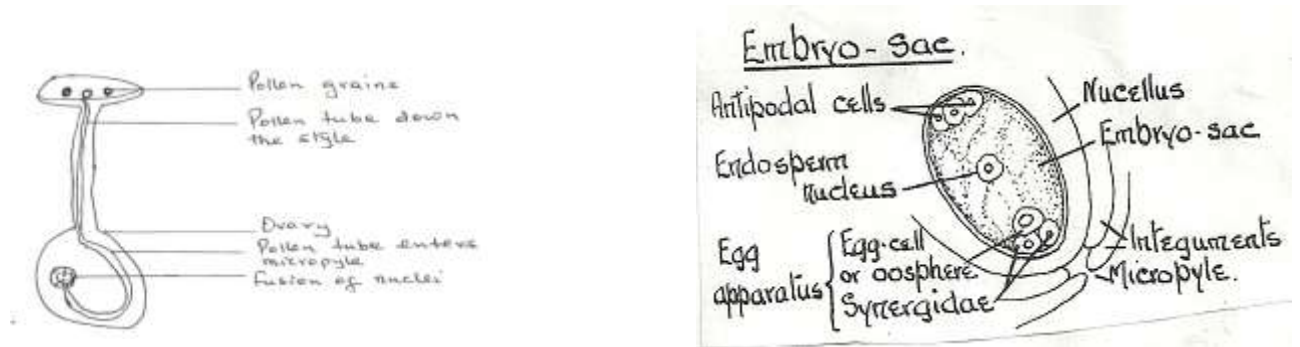 Pollen grains
Pollen tube down
the style
Ovary
Pollen tube enters
micropyle
Fusion of nuclei
Embryo-sac.
Antipodal cells
Nucellus
Embryo-sac
Endosperm
nucleus
Egg
apparatus
Egg-cell
or oosphere
Synergidae
Integuments
Micropyle.